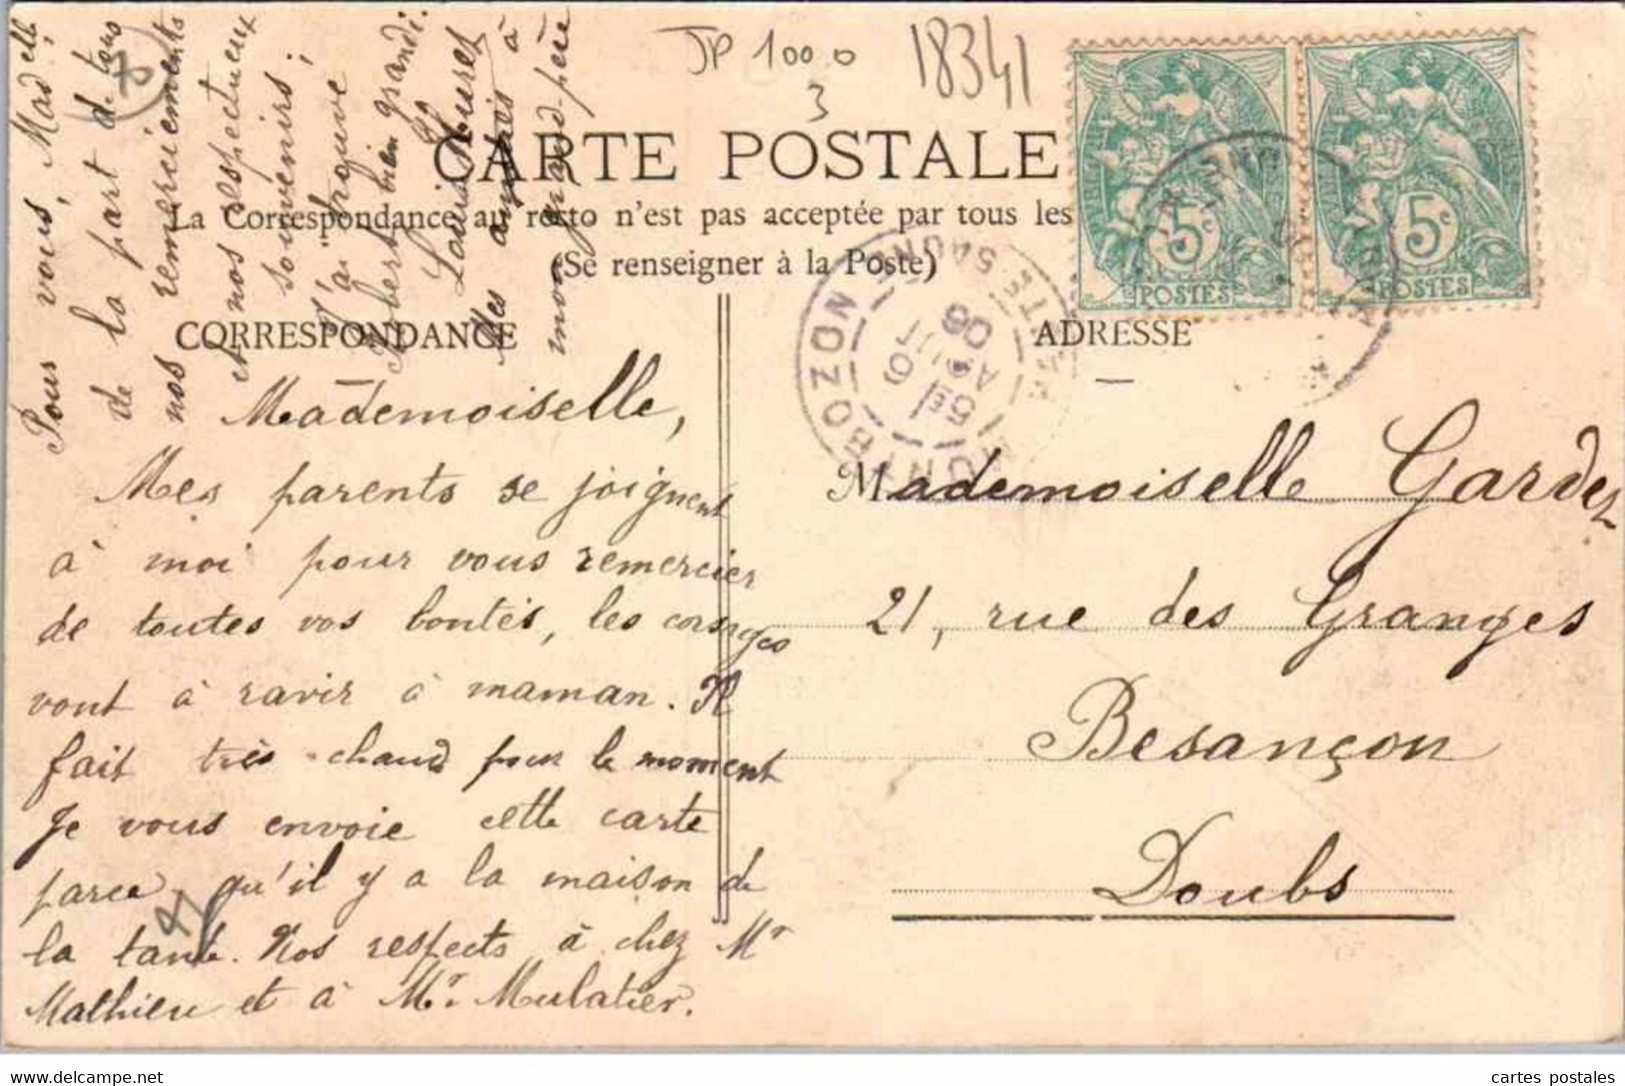 JP 1000
3
18341
CARTE POSTALE
La Correspondance au recto n'est pas acceptée par tous les
(Se renseigner à la Poste)
CORRESPONDANCE
ADRESSE
5c
POSTES
5c
POSTES
MONTBOZON
HTE SAONE
5E
6
AOUT
06
Mademoiselle,
Mes parents se joignent
à moi pour vous remercier
de toutes vos bontés, les corsages
vont à ravir à maman. Il
fait très chaud pour le moment
Je vous envoie cette carte
parce qu'il y a la maison de
la tante. Nos respects à chez Mr
Mathieu et à Mr. Mulatier.
Pour vous, Madelle
de la part de tous
nos remerciements
et nos respectueux
souvenirs;
J'ai trouvé
Robert bien grandi.
Louis Muret
Mes amitiés à
mon grand-père
Mademoiselle Gardez
21, rue des Granges
Besançon
Doubs
delcampe.net
cartes postales